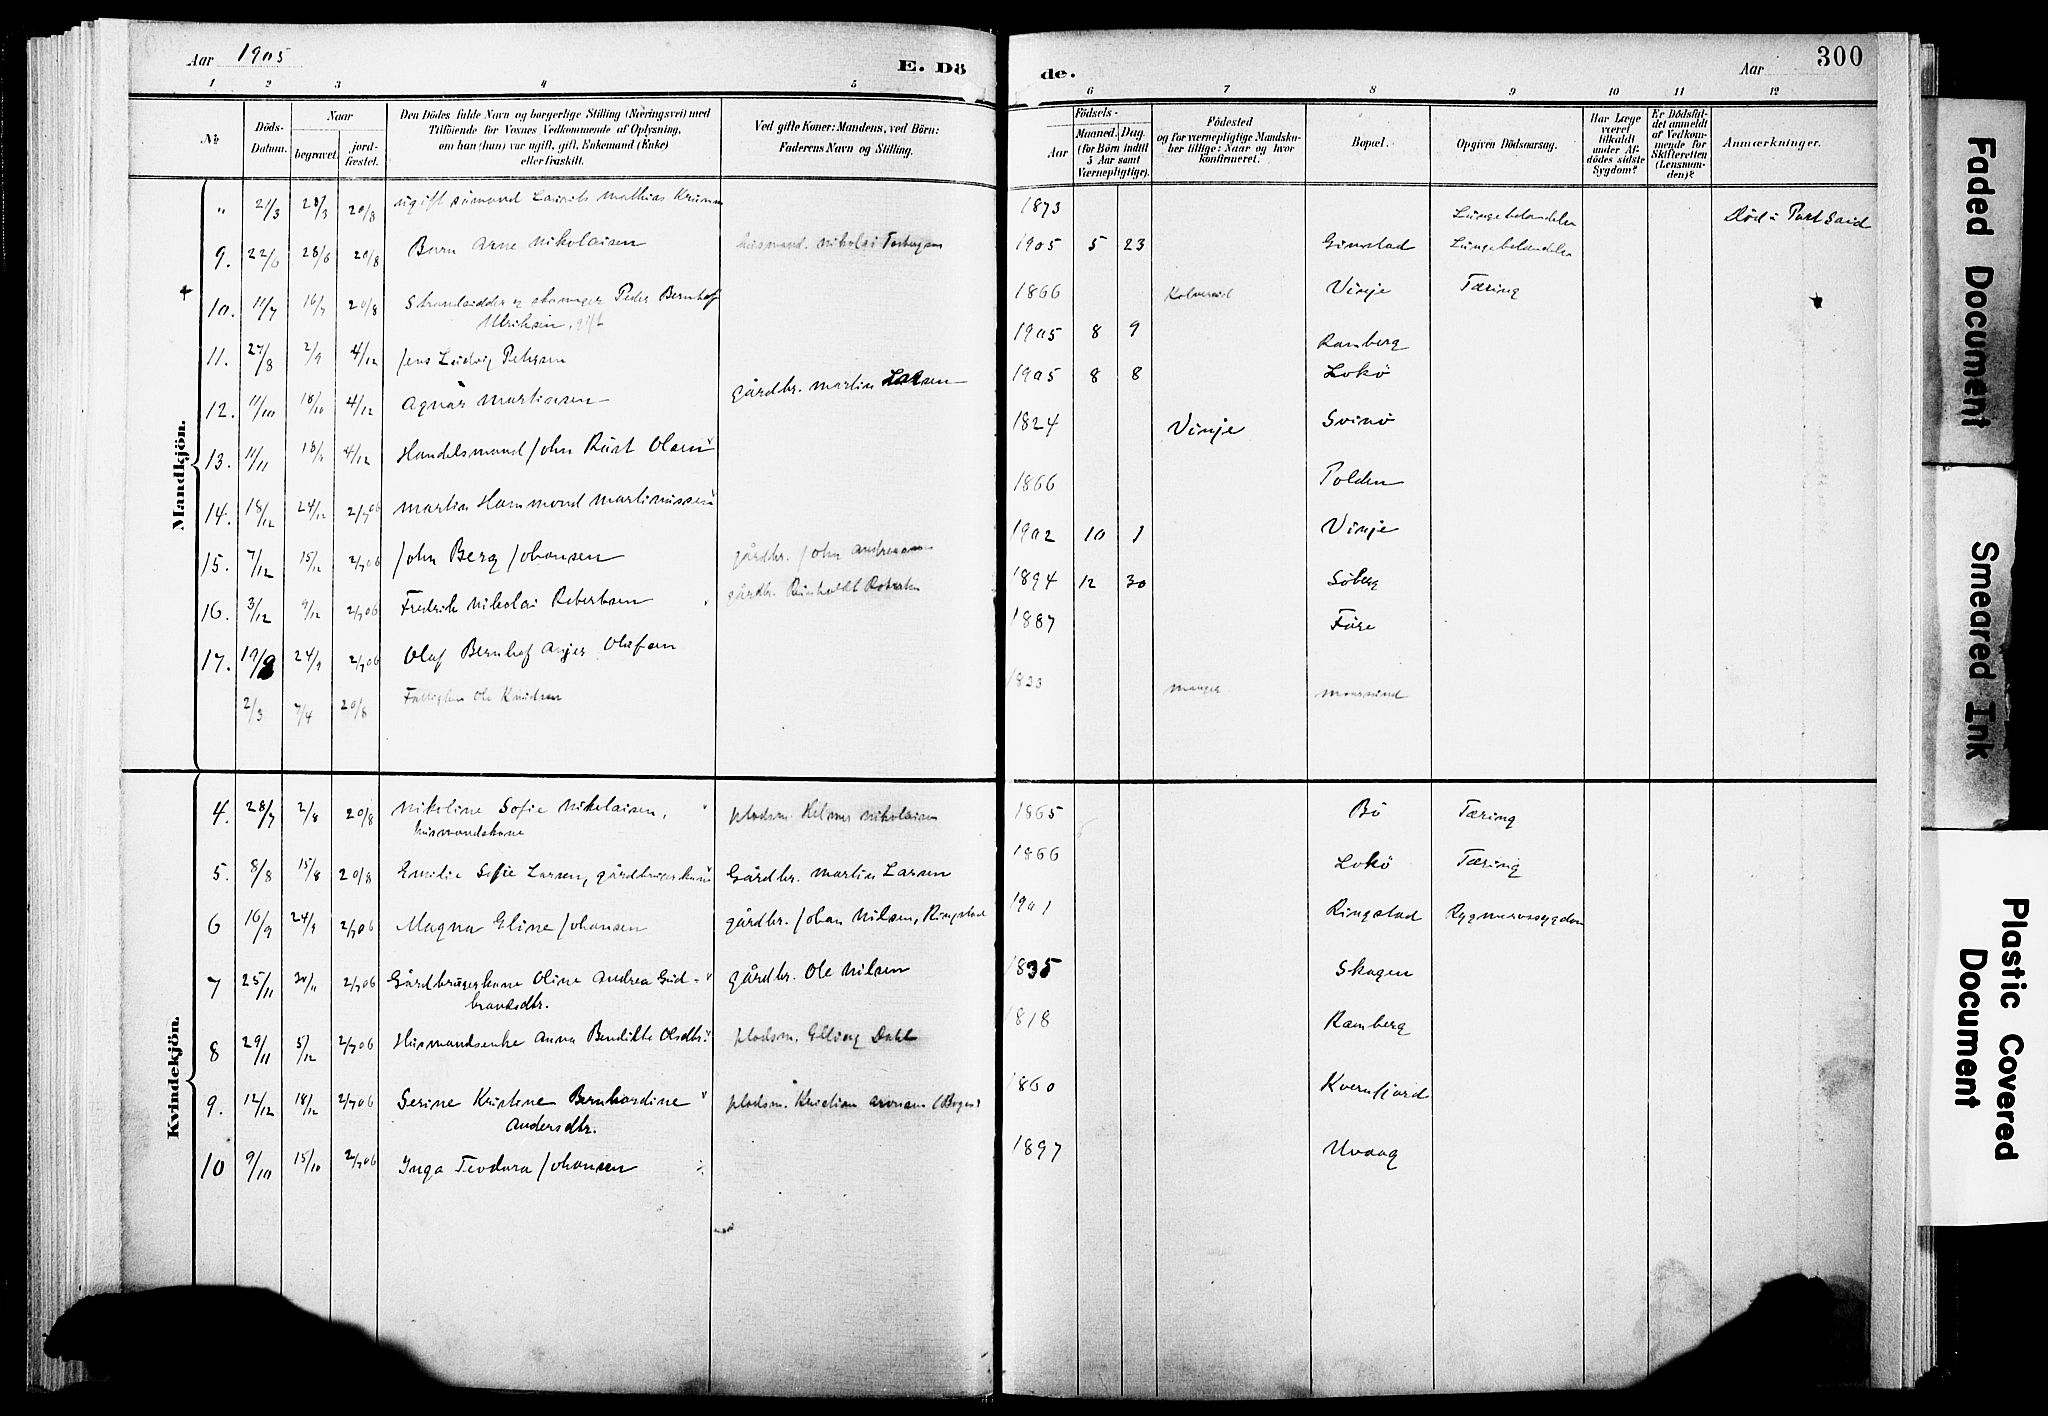 Aar 1905
E. Dö
de.
Aar
300
1 2 3 4 5 6 7 8 9 10 11 12
№
Döds-
Datum.
Naar
begravet.
jord-
fæstet.
Den Dödes fulde Navn og borgerlige Stilling (Næringsvei) med
Tilföiende for Voxnes Vedkommende af Oplysning,
om han (hun) var ugift, gift, Enkemand (Enke)
eller fraskilt.
Ved gifte Koner: Mandens, ved Börn:
Faderens Navn og Stilling.
Födsels-
Aar
Maaned.
Dag.
(for Börn indtil
5 Aar samt
Værnepligtige).
Födested
og for værnepligtige Mandskaber tillige: Naar og hvor
konfirmeret.
Bopæl.
Opgiven Dödsaarsag.
Har Læge
været
tilkaldt
under Afdödes sidste
Sygdom?
Er Dödsfaldet anmeldt
af Vedkommende for
Skifteretten
(Lensmanden)?
Anmærkninger.
Mandkjön.
" 21/3 28/3 20/8 ugift sömand Laurits Mathias 1873 Lungebetændelse Död i Port Said
9. 22/6 28/6 20/8 Barn Arne Nikolaisen husmand. Nikolai 1905 5 23 Gimstad Lungebetændelse
10. 11/7 16/7 20/8 Strandsidder Peder Bernhof 1866 Vinje Tæring
Ulriksen, gift
11. 27/8 2/9 4/12 Jens Ludvig Petersen 1905 8 9 Ramberg
12. 11/10 18/10 4/12 Agnar Martinsen gårdbr. Martin Larsen 1905 8 8 Lokö
13. 11/11 4/12 Handelsmand John Rist Olsen 1824 Vinje Svinö
14. 18/12 24/12 2/7 06 Martin Hammond Martinussen 1866 Polden
15. 7/12 15/12 2/7 06 John Berg Johansen gårdbr. John Andreassen 1902 10 1 Vinje
16. 3/12 9/12 2/7 06 Fredrik Nikolai Robertsen gårdbr. Reinholdt 1894 12 30 Söberg
17. 19/9 24/9 2/7 06 Olaf Bernhof Olufsen 1887 Före
2/3 7/4 20/8 Ole Knudsen 1823
Kvindekjön.
4. 28/7 2/8 20/8 Nikoline Sofie Nikolaisen, pladsm. Helmer Nikolaisen 1865 Bö Tæring
husmandskone
5. 8/8 15/8 20/8 Emilie Sofie Larsen, gårdbrugerkone Gårdbr. Martin Larsen 1866 Lokö Tæring
6 16/9 24/9 2/7 06 Magna Eline Johansen gårdbr. Johan Nilsen, Ringstad 1901 Ringstad Rygmarvssygdom
7 25/11 30/11 2/7 06 Gårdbrugerkone Oline Andrea Gud- gårdbr. Ole Nilsen 1835 Skagen
brandsdtr.
8 29/11 5/12 2/7 06 Husmandsenke Anna Bendikte Olsdtr. pladsm. Elling Dahl 1818 Ramberg
9. 12/12 18/12 2/7 06 Serine Kristine Bernhardine pladsm. Kristian Aronsen (Bogen) 1860 Kvernfjord
Andersdtr.
10 9/10 15/10 2/7 06 Inga Teodora Johansen 1897 Uvaag
Faded Document
Smeared Ink
Plastic Covered
Document